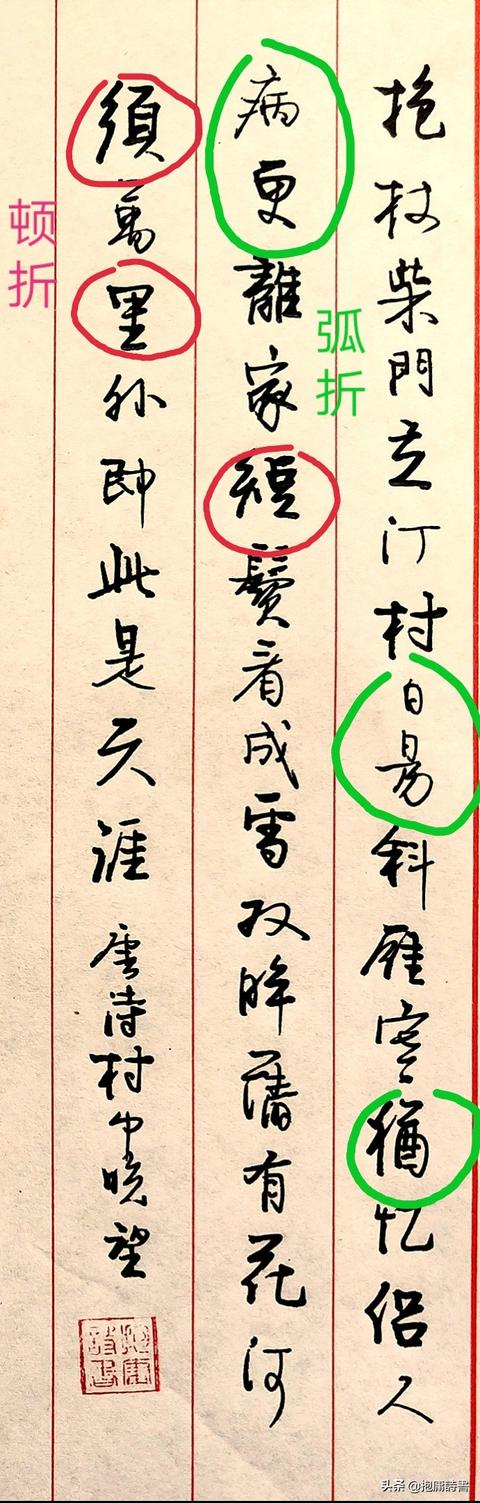 抱杖柴門立江村日易斜雁寒猶忆侣人
病更離家短鬢看成雪双眸舊有花何
須萬里外即此是天涯 唐诗村中晚望
弧折
顿折
抱庸詩書
头条 @抱庸詩書